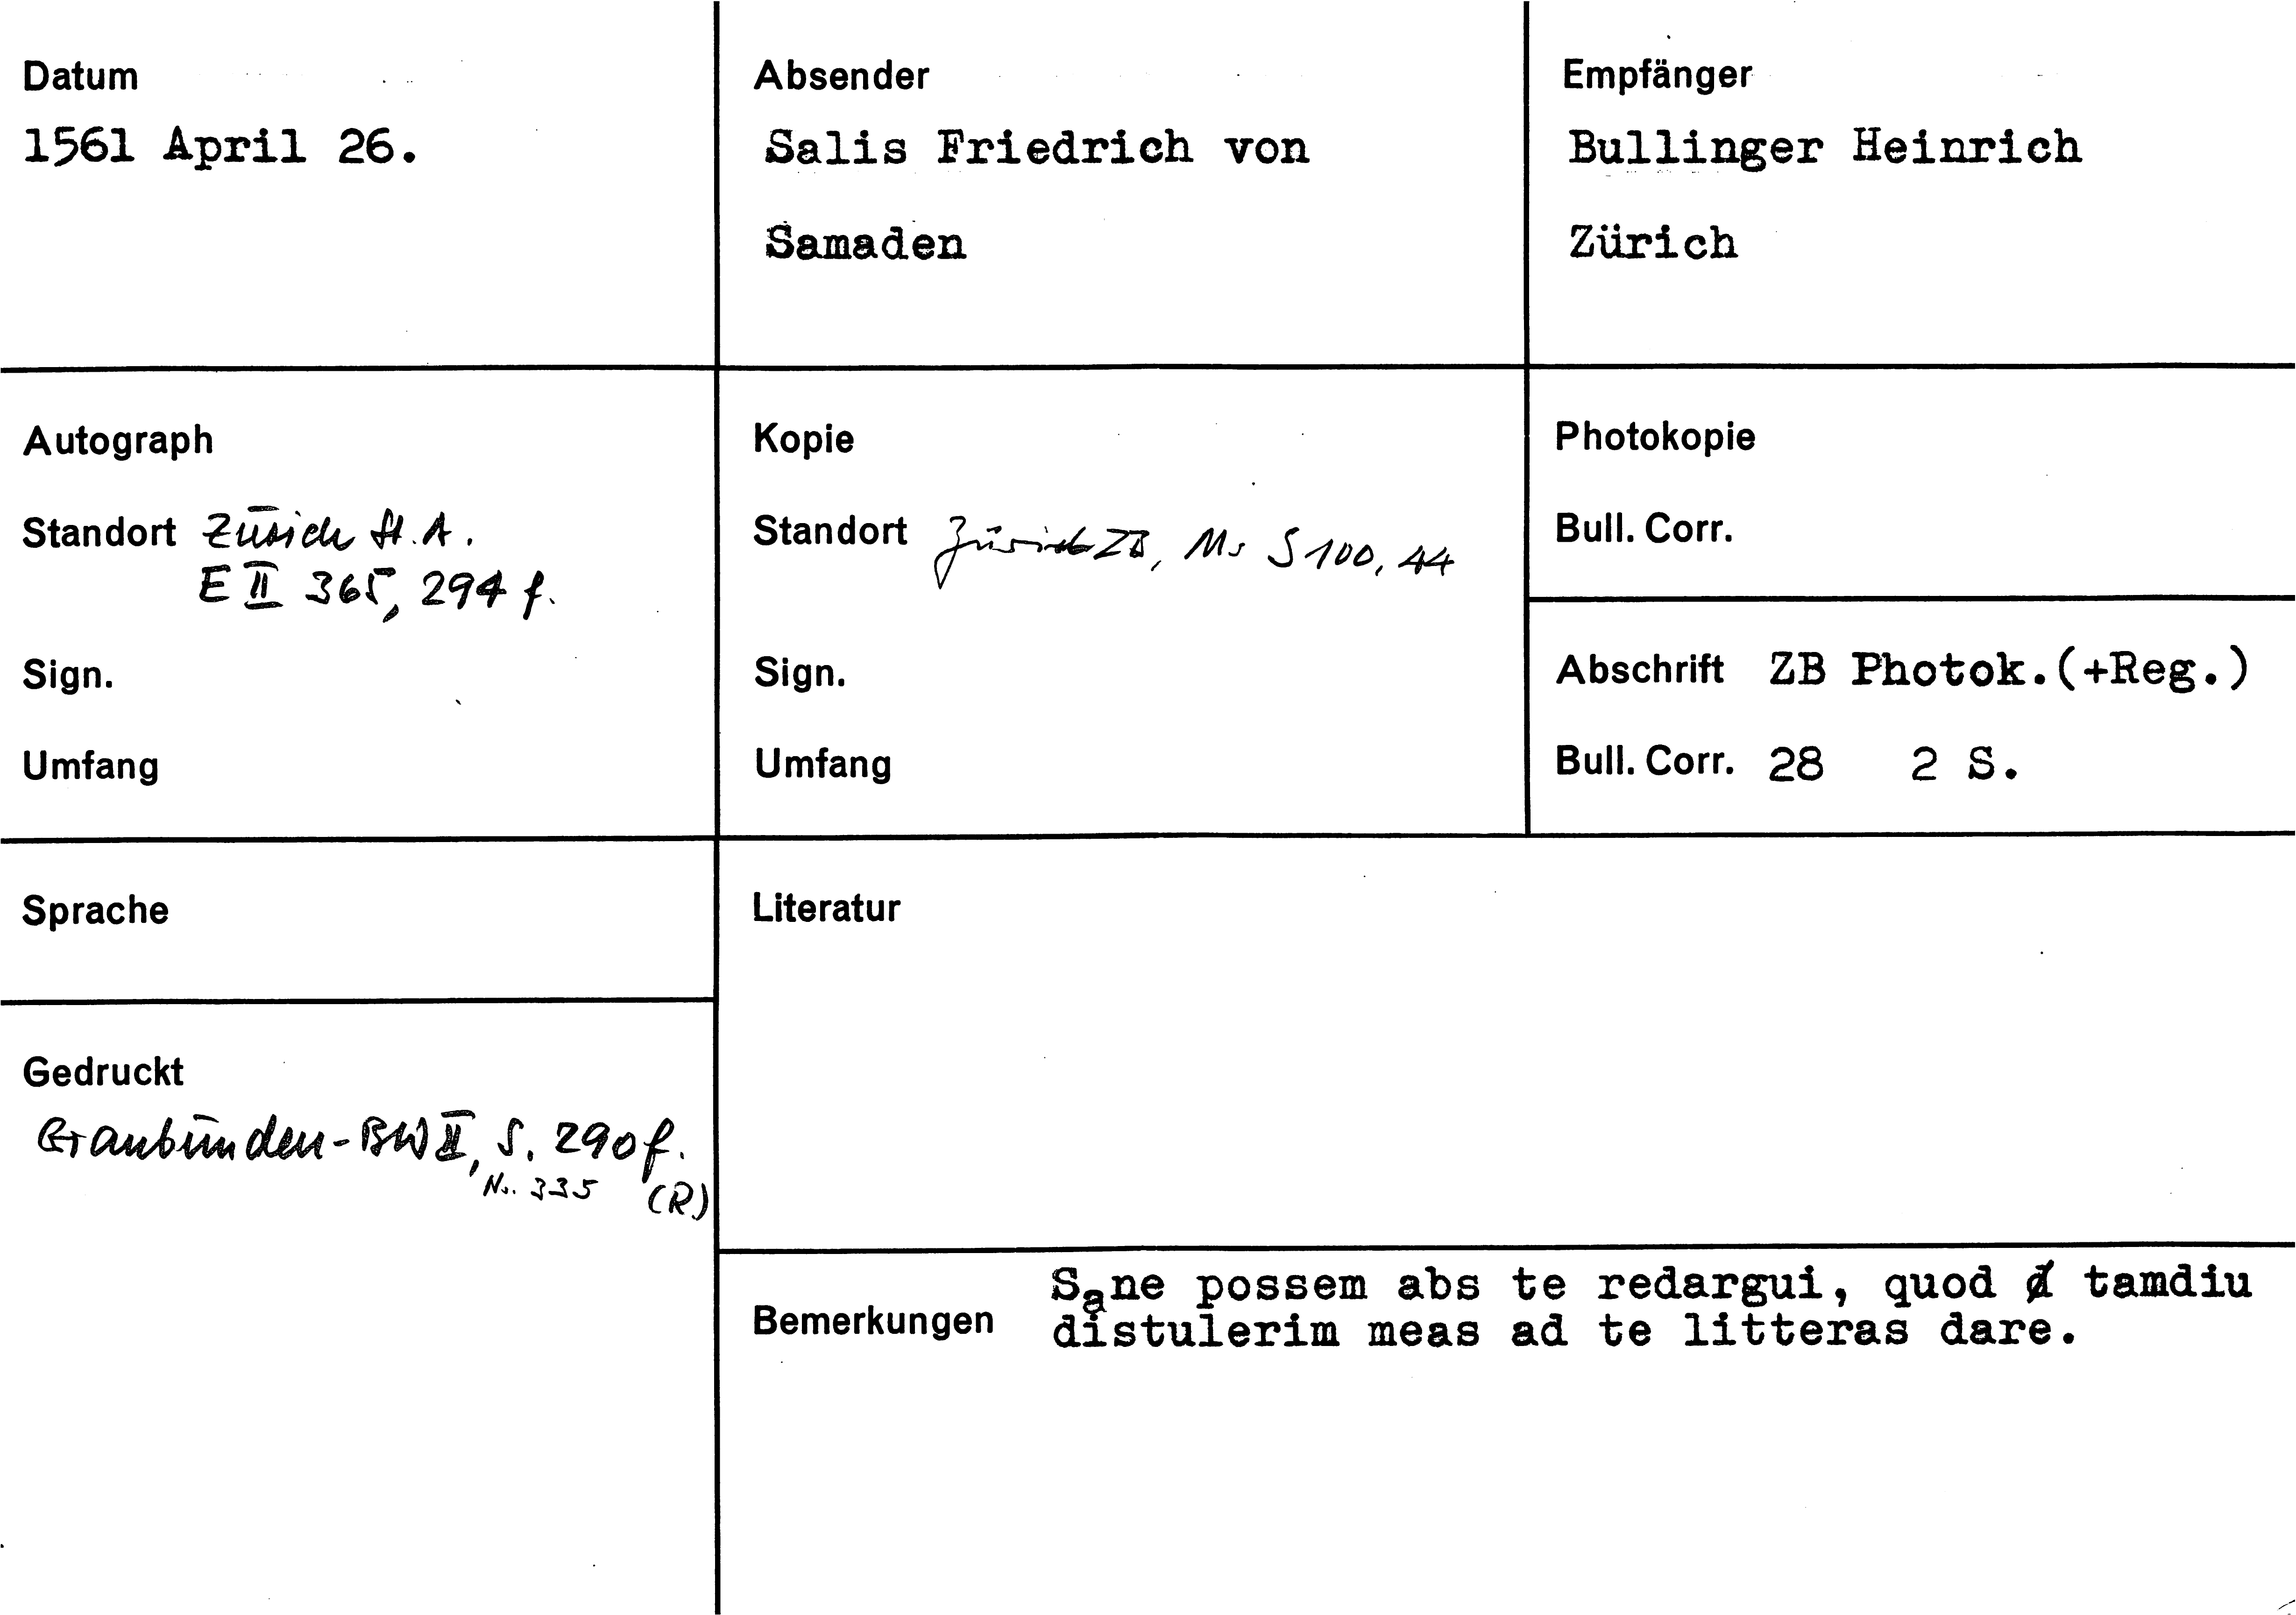 Datum
1561 April 26.
Absender
Salis Friedrich von
Samaden
Empfänger
Bullinger Heinrich
Zürich
Autograph
Standort Zürich St. A.
E II 365, 294 f.
Sign.
Umfang
Kopie
Standort Zürich ZB, Ms S 100, 44
Sign.
Umfang
Photokopie
Bull. Corr.
Abschrift ZB Photok.(+Reg.)
Bull. Corr. 28 2 S.
Sprache
Literatur
Gedruckt
Graubünden-BW II, S. 290 f.
Nr. 335 (R)
Bemerkungen
Sane possem abs te redargui, quod tamdiu
distulerim meas ad te litteras dare.